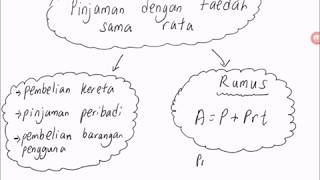 Pinjaman dengan faedah
sama rata
→pembelian kereta
→pinjaman peribadi
→pembelian barangan
pengguna
Rumus
A = P + Prt
P